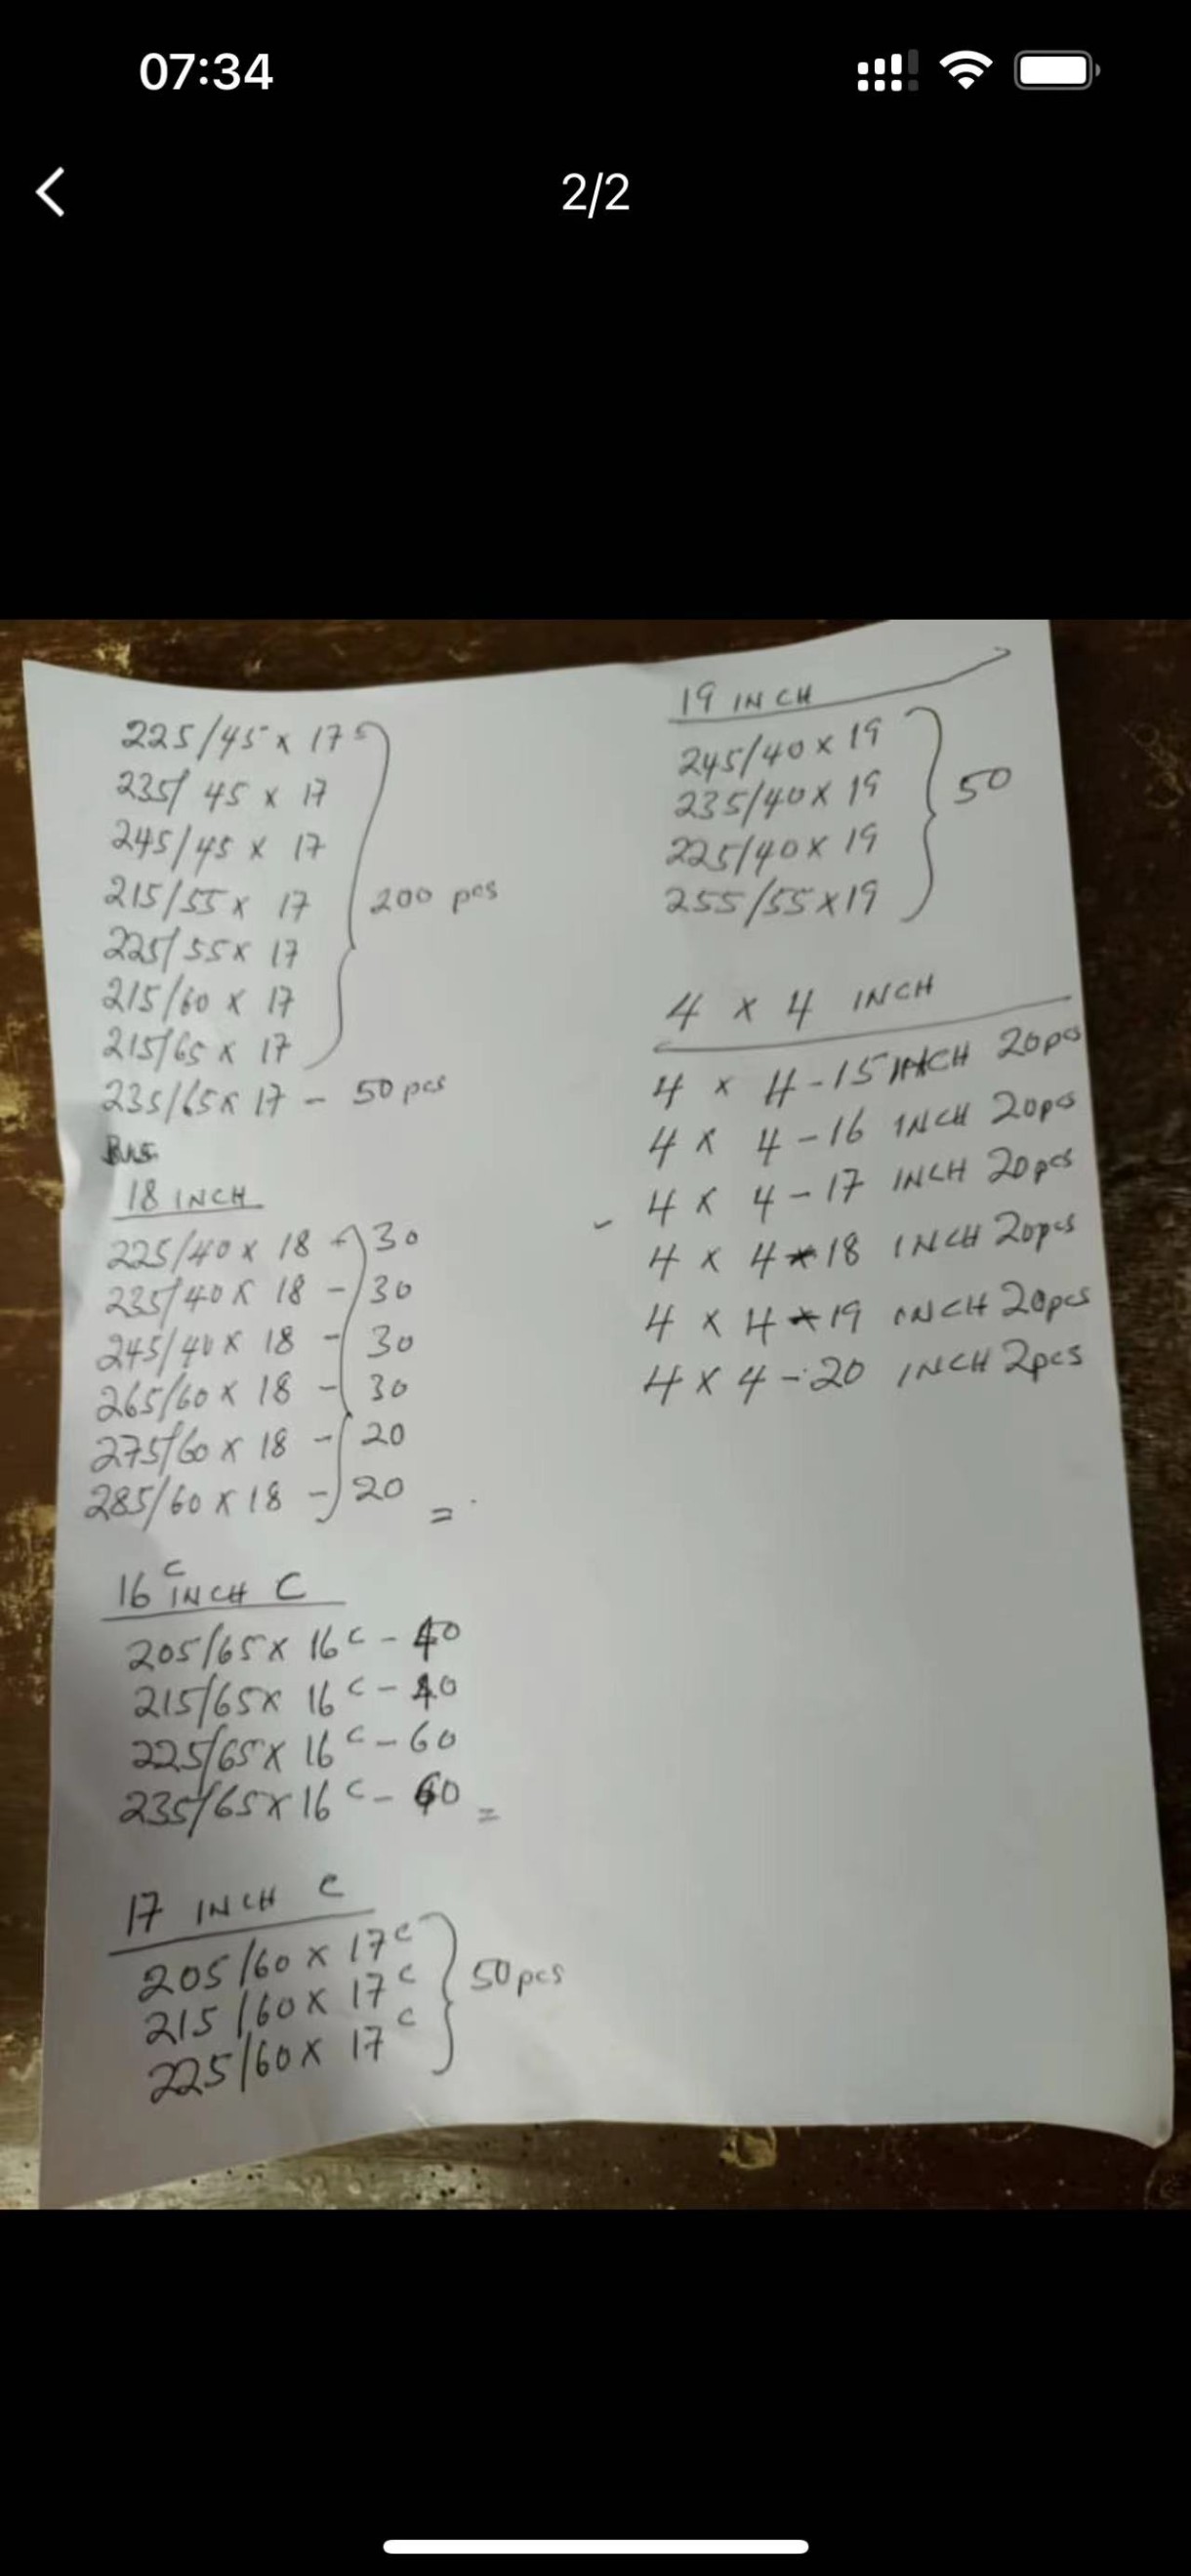 07:34
2/2
225/45 x 17
235/ 45 x 17
245/45 x 17
215/55 x 17
225/55 x 17
215/60 x 17
215/65 x 17
200 pcs
235/65 x 17 - 50 pcs
18 INCH
225/40 x 18 - 30
235/40 x 18 - 30
245/40 x 18 - 30
265/60 x 18 - 30
275/60 x 18 - 20
285/60 x 18 - 20 =
16 C INCH C
205/65 x 16 C - 40
215/65 x 16 C - 40
225/65 x 16 C - 60
235/65 x 16 C - 60 =
17 INCH C
205/60 x 17 C
215/60 x 17 C
225/60 x 17 C
50 pcs
19 INCH
245/40 x 19
235/40 x 19
225/40 x 19
255/55 x 19
50
4 x 4 INCH
4 x 4 - 15 INCH 20pcs
4 x 4 - 16 INCH 20pcs
4 x 4 - 17 INCH 20pcs
4 x 4 - 18 INCH 20pcs
4 x 4 - 19 INCH 20pcs
4 x 4 - 20 INCH 2pcs